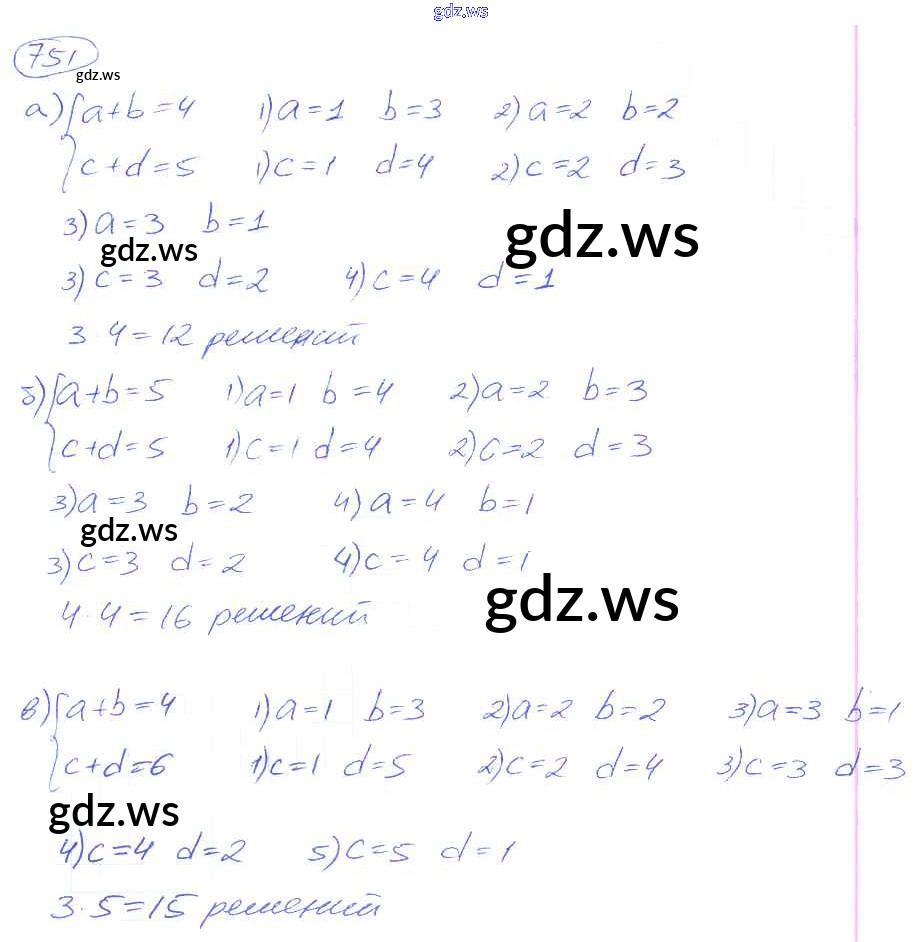 gdz.ws
751
gdz.ws
а) { a+b=4 1) a=1 b=3 2) a=2 b=2
c+d=5 1) c=1 d=4 2) c=2 d=3
3) a=3 b=1
gdz.ws gdz.ws
3) c=3 d=2 4) c=4 d=1
3·4=12 решений
б) { a+b=5 1) a=1 b=4 2) a=2 b=3
c+d=5 1) c=1 d=4 2) c=2 d=3
3) a=3 b=2 4) a=4 b=1
gdz.ws
3) c=3 d=2 4) c=4 d=1
gdz.ws
4·4=16 решений
в) { a+b=4 1) a=1 b=3 2) a=2 b=2 3) a=3 b=1
c+d=6 1) c=1 d=5 2) c=2 d=4 3) c=3 d=3
gdz.ws
4) c=4 d=2 5) c=5 d=1
3·5=15 решений